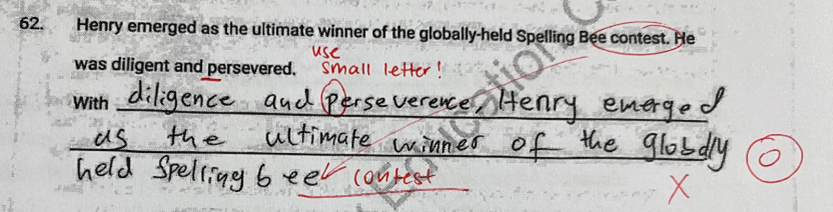 62. Henry emerged as the ultimate winner of the globally-held Spelling Bee contest. He
use
was diligent and persevered. small letter!
With diligence and perseverence, Henry emerged
as the ultimate winner of the globally
held Spelling bee contest